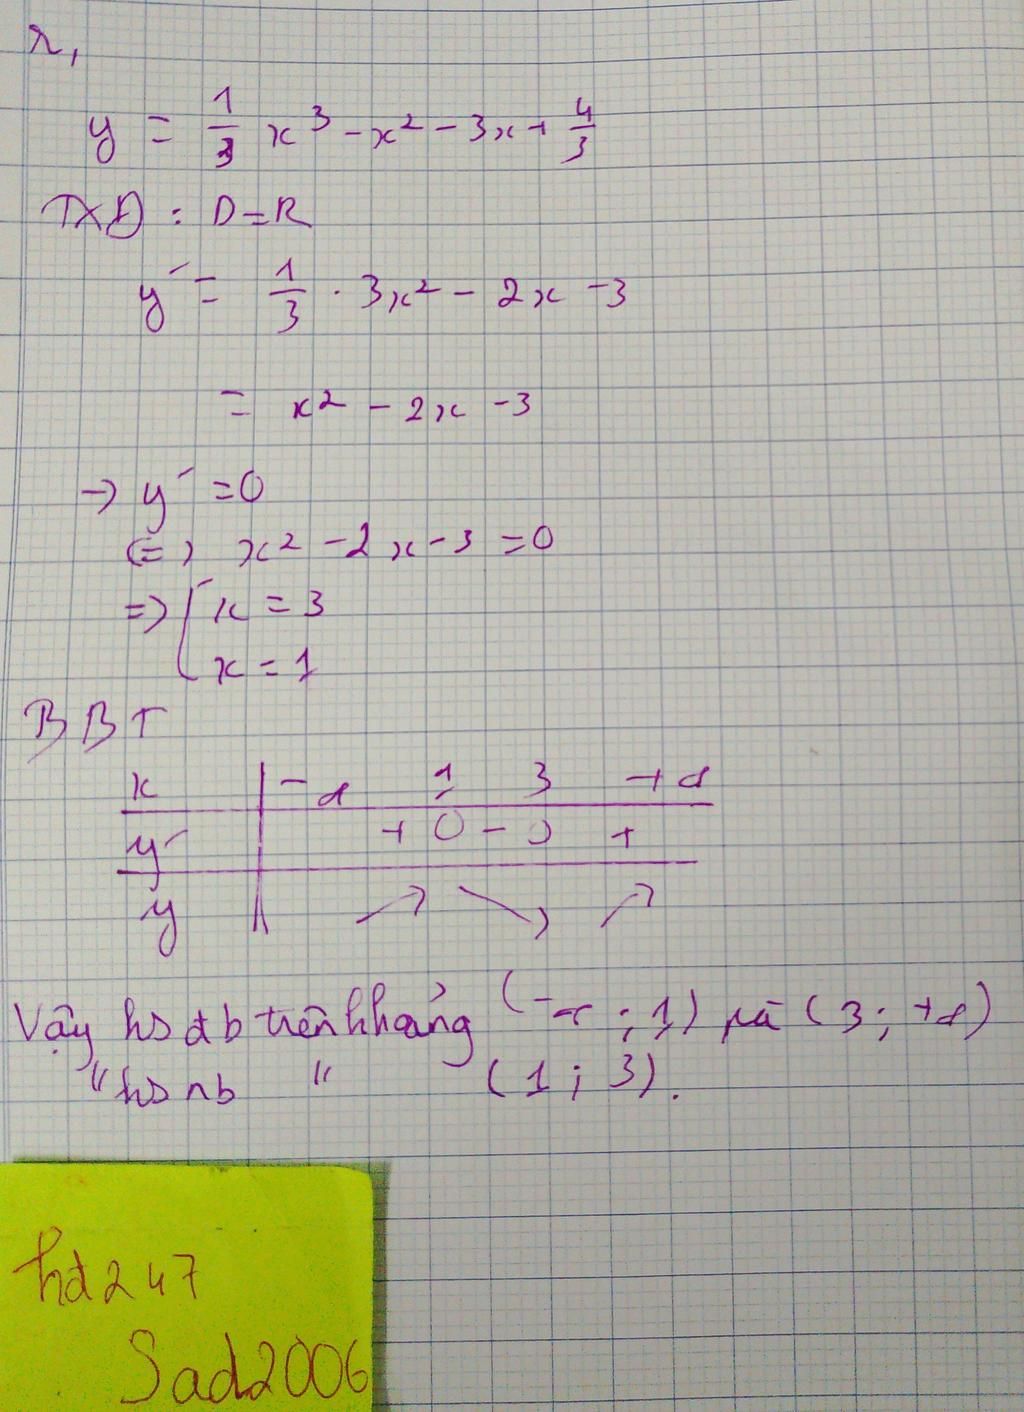 r,
y = 1/3 x³ - x² - 3x + 4/3
TXĐ : D = R
y' = 1/3 . 3x² - 2x - 3
= x² - 2x - 3
→ y' = 0
(=) x² - 2x - 3 = 0
=> [ x = 3
x = 1
BBT
x | -∞ 1 3 +∞
y' | + 0 - 0 +
y | ↗ ↘ ↗
Vậy hs đb trên khoảng (-∞ ; 1) và (3 ; +∞)
" hs nb " (1 ; 3).
hd247
Sad2006